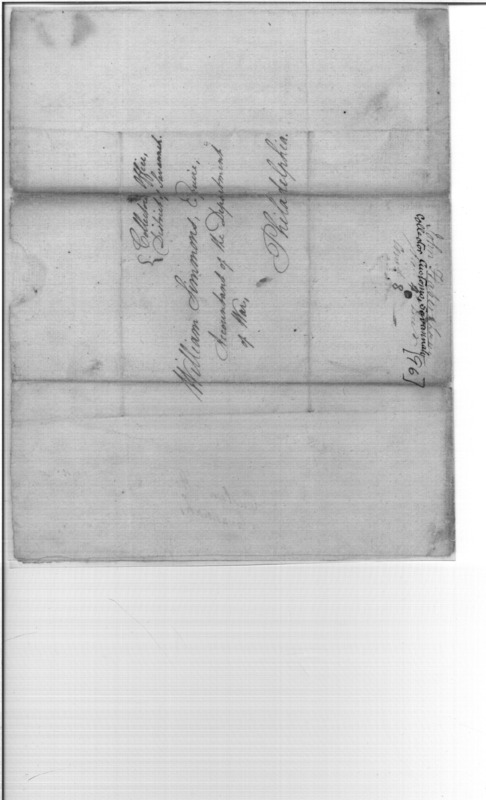 { Collector's Office,
District of Savannah.
William Simmons, Esquire,
Accountant of the Department
of War,
Philadelphia.
John
Collector Customs Savannah
8
[96]